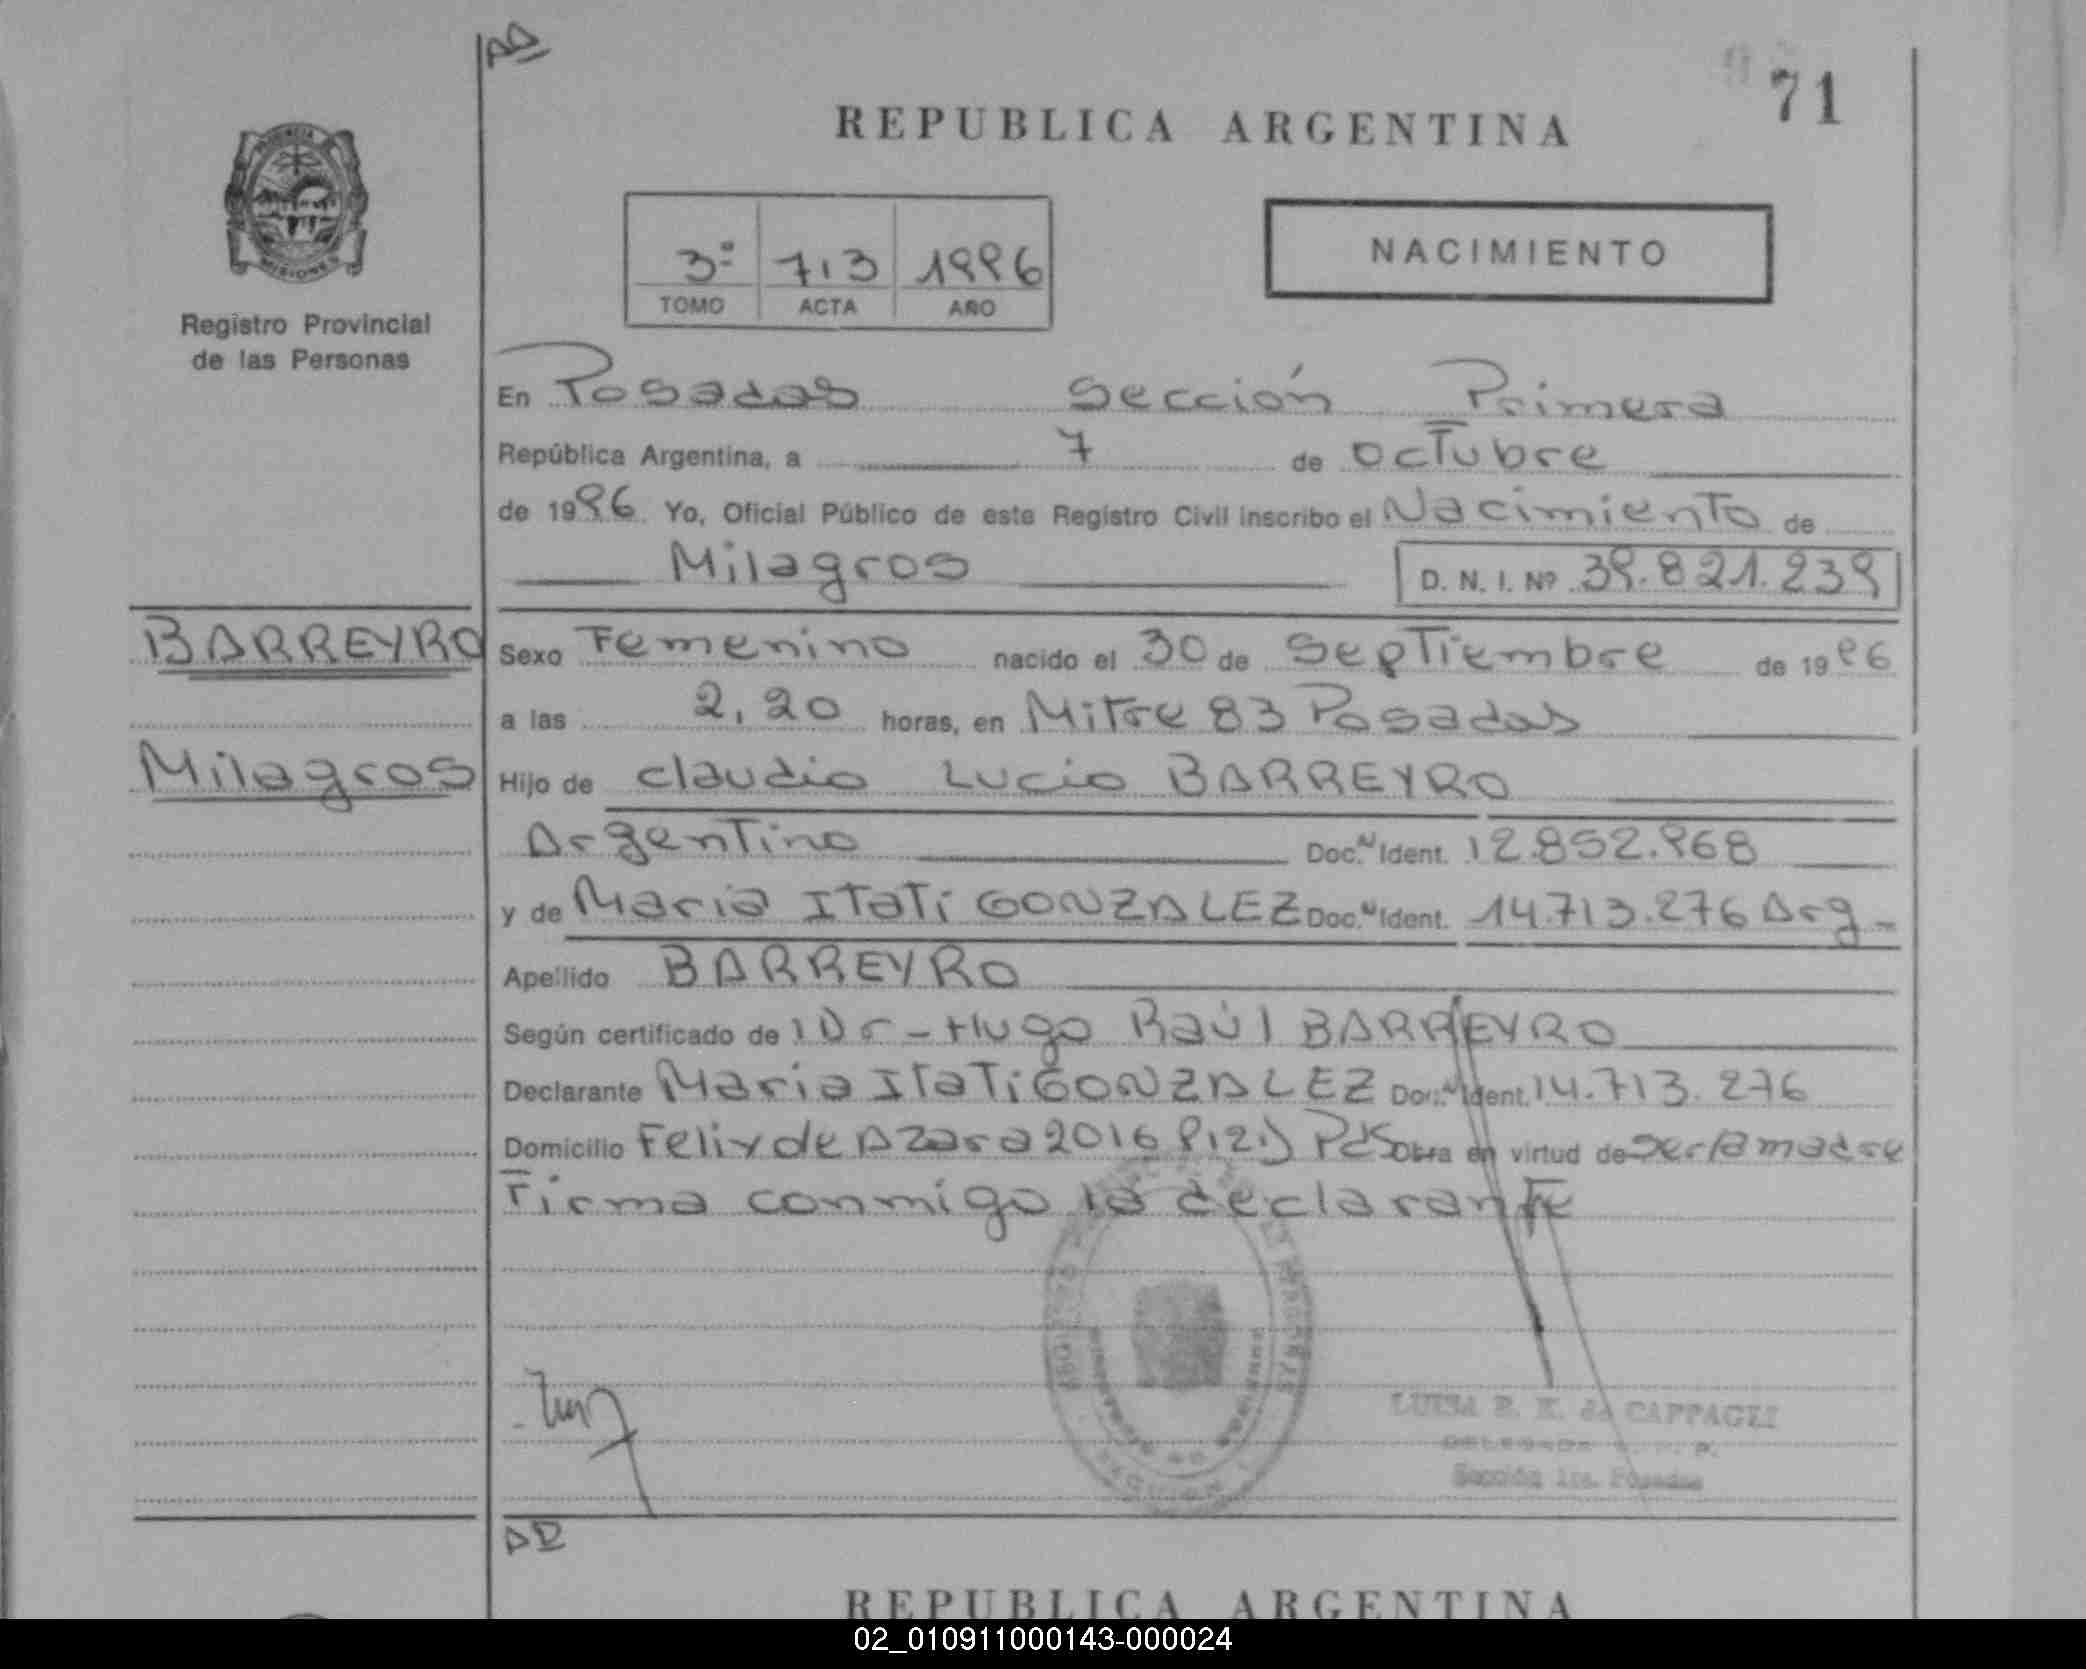 AD
71
REPUBLICA ARGENTINA
3º 713 1996
TOMO ACTA AÑO
NACIMIENTO
MISIONES
Registro Provincial
de las Personas
En Posadas Sección Primera
República Argentina, a 7 de octubre
de 1996. Yo, Oficial Público de este Registro Civil inscribo el Nacimiento de
Milagros D. N. I. Nº 39.821.239
BARREYRO
Sexo Femenino nacido el 30 de Septiembre de 1996
a las 2,20 horas, en Mitre 83 Posadas
Milagros
Hijo de Claudio Lucio BARREYRO
Argentino Doc. Ident. 12.852.968
y de Maria Itati GONZALEZ Doc. Ident. 14.713.276 Arg-
Apellido BARREYRO
Según certificado de Dr- Hugo Raúl BARREYRO
Declarante Maria Itati GONZALEZ Doc. Ident. 14.713.276
Domicilio Felix de Azara 2016 Pds Obra en virtud de ser la madre
Firma conmigo la declarante
LUISA E. K. de CAPPAGLI
Sección 1ra. Posadas
REPUBLICA ARGENTINA
02_010911000143-000024